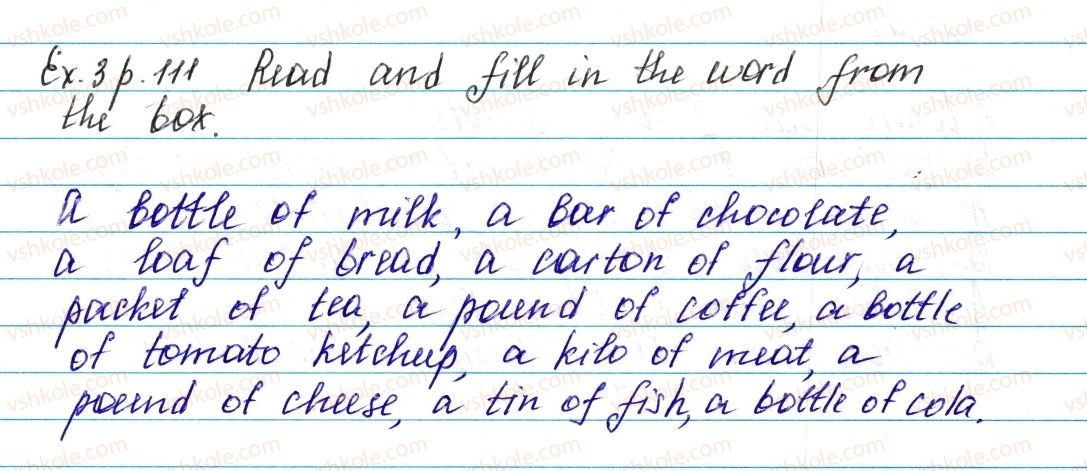 Ex. 3 p. 111 Read and fill in the word from
the box.
A bottle of milk, a bar of chocolate,
a loaf of bread, a carton of flour, a
packet of tea, a pound of coffee, a bottle
of tomato ketchup, a kilo of meat, a
pound of cheese, a tin of fish, a bottle of cola.